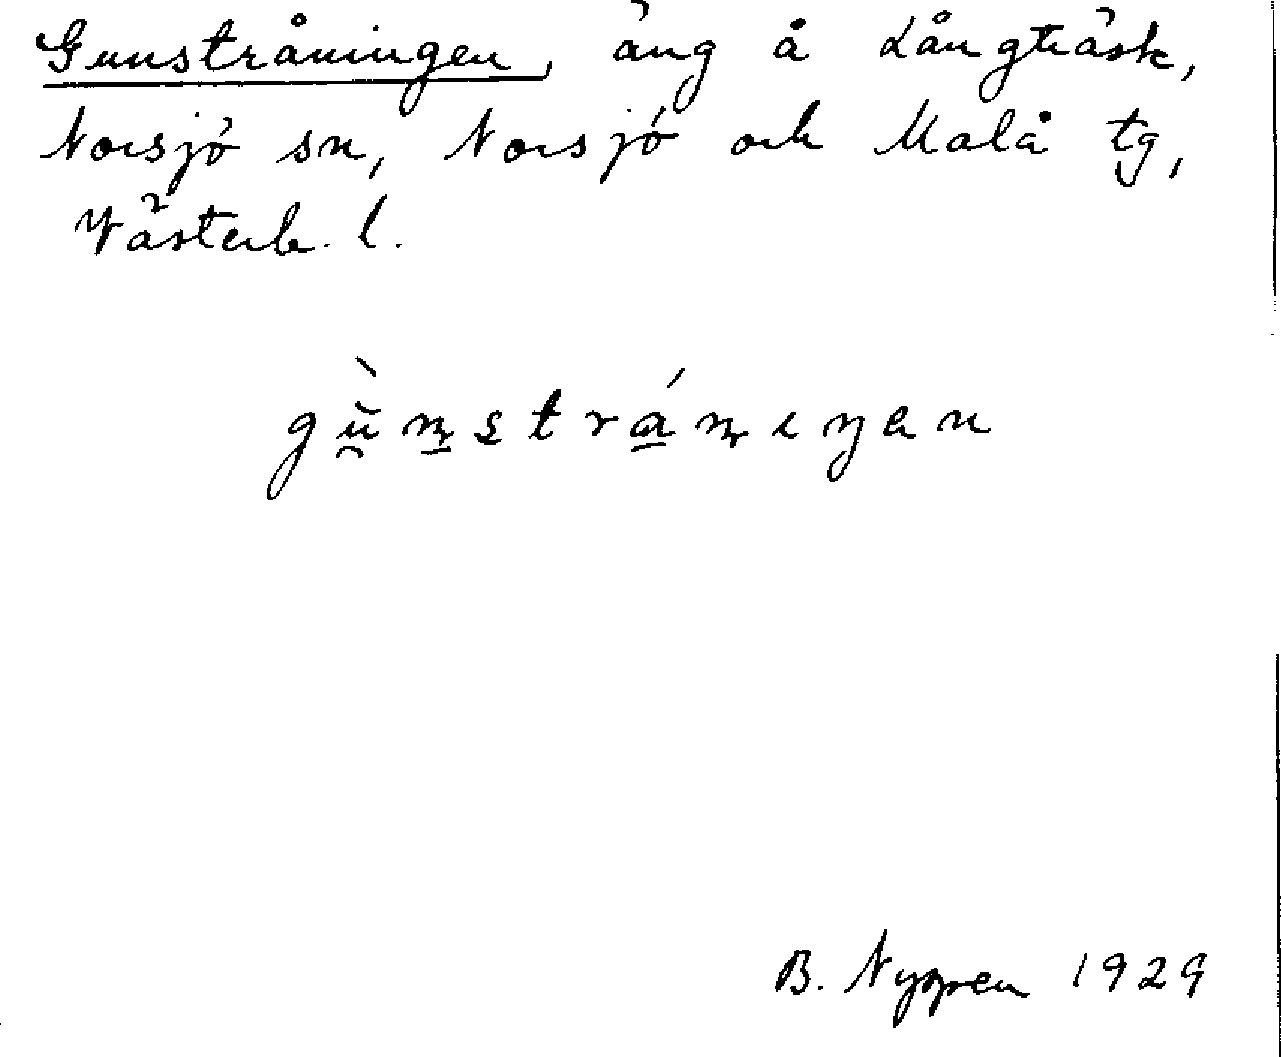 Gunstråningen, äng å Långträsk,
Norsjö sn, Norsjö och Malå tg,
Västerb. l.
gùnstránıŋen
B. Nygren 1929